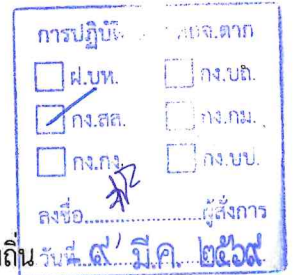 การปฏิบัติ ตาก
ฝ.บห. กง.บถ.
กง.สส. กง.กม.
กง.กง. กง.บบ.
ลงชื่อ..................ผู้สั่งการ
ถิ่น วันที่ ๙ มี.ค. ๒๕๖๙